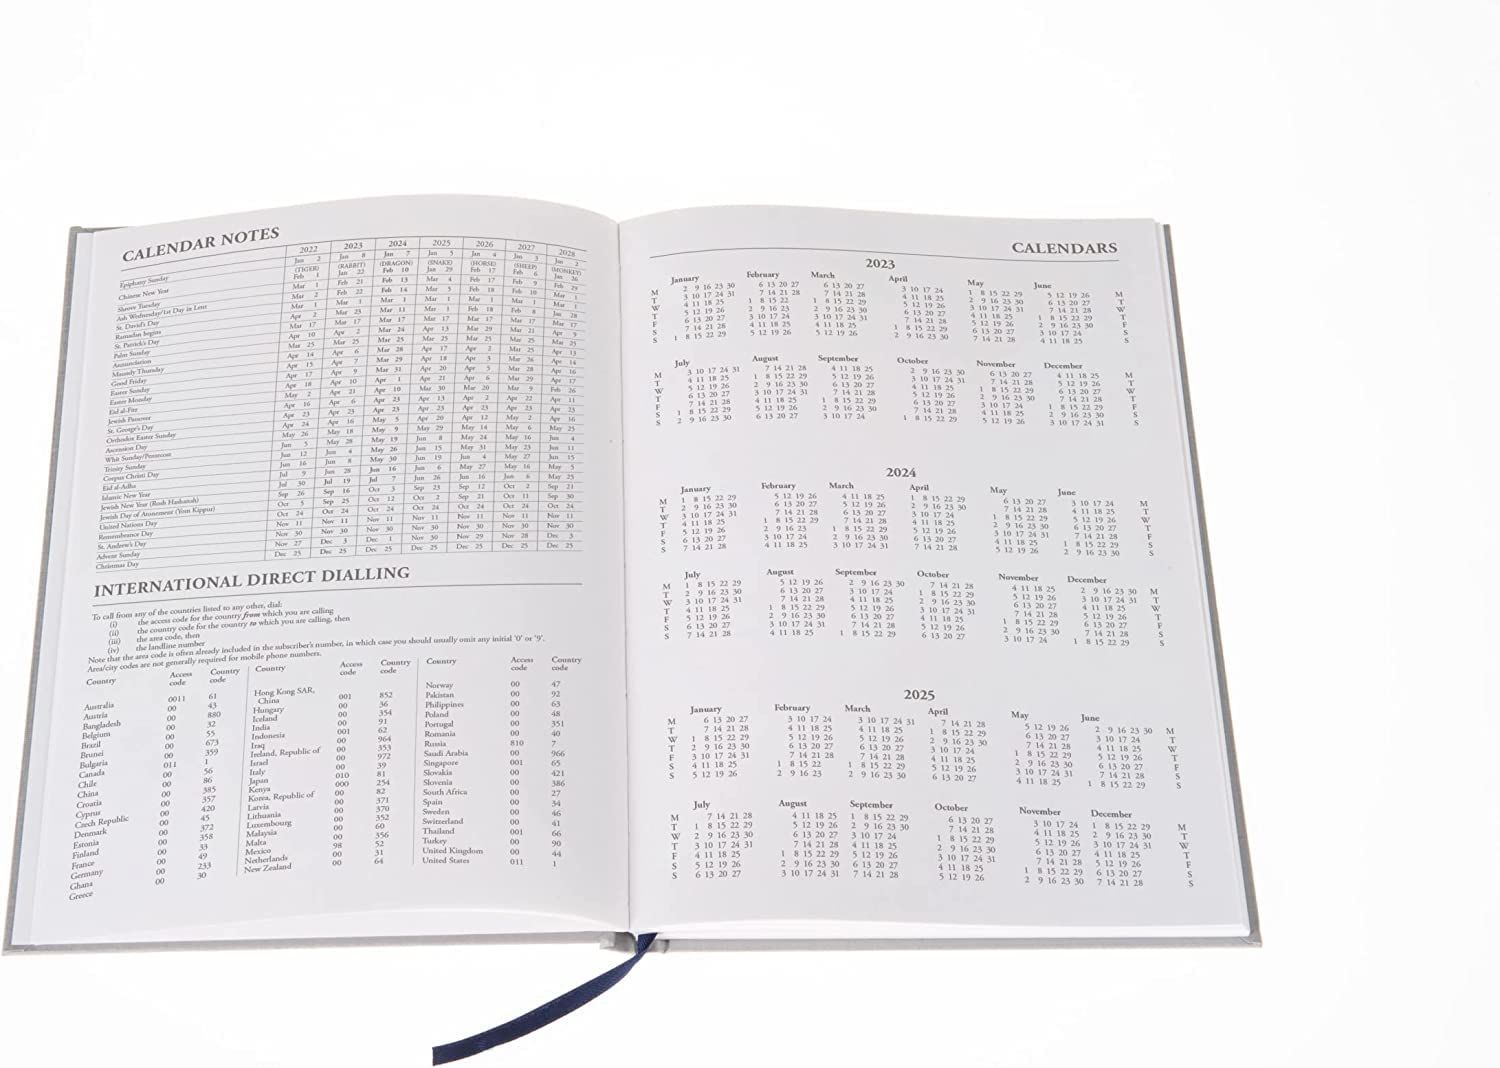 CALENDAR NOTES
2022 2023 2024 2025 2026 2027 2028
Epiphany Sunday Jan 2 Jan 8 Jan 7 Jan 5 Jan 4 Jan 3 Jan 2
(TIGER) (RABBIT) (DRAGON) (SNAKE) (HORSE) (SHEEP) (MONKEY)
Chinese New Year Feb 1 Jan 22 Feb 10 Jan 29 Feb 17 Feb 6 Jan 26
Shrove Tuesday Mar 1 Feb 21 Feb 13 Mar 4 Feb 17 Feb 9 Feb 29
Ash Wednesday/1st Day in Lent Mar 2 Feb 22 Feb 14 Mar 5 Feb 18 Feb 10 Mar 1
St. David's Day Mar 1 Mar 1 Mar 1 Mar 1 Mar 1 Mar 1 Mar 1
Ramadan begins Apr 2 Mar 23 Mar 11 Mar 1 Feb 18 Feb 8 Jan 28
St. Patrick's Day Mar 17 Mar 17 Mar 17 Mar 17 Mar 17 Mar 17 Mar 17
Palm Sunday Apr 10 Apr 2 Mar 24 Apr 13 Mar 29 Mar 21 Apr 9
Annunciation Mar 25 Mar 25 Mar 25 Mar 25 Mar 25 Mar 25 Mar 25
Maundy Thursday Apr 14 Apr 6 Mar 28 Apr 17 Apr 2 Mar 25 Apr 13
Good Friday Apr 15 Apr 7 Mar 29 Apr 18 Apr 3 Mar 26 Apr 14
Easter Sunday Apr 17 Apr 9 Mar 31 Apr 20 Apr 5 Mar 28 Apr 16
Easter Monday Apr 18 Apr 10 Apr 1 Apr 21 Apr 6 Mar 29 Apr 17
Eid al-Fitr May 2 Apr 21 Apr 10 Mar 30 Mar 20 Mar 9 Feb 26
Jewish Passover Apr 16 Apr 6 Apr 23 Apr 13 Apr 2 Apr 22 Apr 11
St. George's Day Apr 23 Apr 23 Apr 23 Apr 23 Apr 23 Apr 23 Apr 23
Orthodox Easter Sunday Apr 24 Apr 16 May 5 Apr 20 Apr 12 May 2 Apr 16
Ascension Day May 26 May 18 May 9 May 29 May 14 May 6 May 25
Whit Sunday/Pentecost Jun 5 May 28 May 19 Jun 8 May 24 May 16 Jun 4
Trinity Sunday Jun 12 Jun 4 May 26 Jun 15 May 31 May 23 Jun 11
Corpus Christi Day Jun 16 Jun 8 May 30 Jun 19 Jun 4 May 27 Jun 15
Eid al-Adha Jul 9 Jun 28 Jun 16 Jun 6 May 27 May 16 May 5
Islamic New Year Jul 30 Jul 19 Jul 7 Jun 26 Jun 16 Jun 6 May 25
Jewish New Year (Rosh Hashanah) Sep 26 Sep 16 Oct 3 Sep 23 Sep 12 Oct 2 Sep 21
Jewish Day of Atonement (Yom Kippur) Oct 5 Sep 25 Oct 12 Oct 2 Sep 21 Oct 11 Sep 30
United Nations Day Oct 24 Oct 24 Oct 24 Oct 24 Oct 24 Oct 24 Oct 24
Remembrance Day Nov 11 Nov 11 Nov 11 Nov 11 Nov 11 Nov 11 Nov 11
St. Andrew's Day Nov 30 Nov 30 Nov 30 Nov 30 Nov 30 Nov 30 Nov 30
Advent Sunday Nov 27 Dec 3 Dec 1 Nov 30 Nov 29 Nov 28 Dec 3
Christmas Day Dec 25 Dec 25 Dec 25 Dec 25 Dec 25 Dec 25 Dec 25
INTERNATIONAL DIRECT DIALLING
To call from any of the countries listed to any other, dial:
(i) the access code for the country from which you are calling
(ii) the country code for the country to which you are calling, then
(iii) the area code, then
(iv) the landline number
Note that the area code is often already included in the subscriber's number, in which case you should usually omit any initial '0' or '9'.
Area/city codes are not generally required for mobile phone numbers.
Country Access code Country code
Australia 0011 61
Austria 00 43
Bangladesh 00 880
Belgium 00 32
Brazil 00 55
Brunei 00 673
Bulgaria 00 359
Canada 011 1
Chile 00 56
China 00 86
Croatia 00 385
Cyprus 00 357
Czech Republic 00 420
Denmark 00 45
Estonia 00 372
Finland 00 358
France 00 33
Germany 00 49
Ghana 00 233
Greece 00 30
Country Access code Country code
Hong Kong SAR,
China 001 852
Hungary 00 36
Iceland 00 354
India 00 91
Indonesia 001 62
Iraq 00 964
Ireland, Republic of 00 353
Israel 00 972
Italy 00 39
Japan 010 81
Kenya 000 254
Korea, Republic of 00 82
Latvia 00 371
Lithuania 00 370
Luxembourg 00 352
Malaysia 00 60
Malta 00 356
Mexico 98 52
Netherlands 00 31
New Zealand 00 64
Country Access code Country code
Norway 00 47
Pakistan 00 92
Philippines 00 63
Poland 00 48
Portugal 00 351
Romania 00 40
Russia 810 7
Saudi Arabia 00 966
Singapore 001 65
Slovakia 00 421
Slovenia 00 386
South Africa 00 27
Spain 00 34
Sweden 00 46
Switzerland 00 41
Thailand 001 66
Turkey 00 90
United Kingdom 00 44
United States 011 1
CALENDARS
2023
January February March April May June
M 2 9 16 23 30 6 13 20 27 6 13 20 27 3 10 17 24 1 8 15 22 29 5 12 19 26 M
T 3 10 17 24 31 7 14 21 28 7 14 21 28 4 11 18 25 2 9 16 23 30 6 13 20 27 T
W 4 11 18 25 1 8 15 22 1 8 15 22 29 5 12 19 26 3 10 17 24 31 7 14 21 28 W
T 5 12 19 26 2 9 16 23 2 9 16 23 30 6 13 20 27 4 11 18 25 1 8 15 22 29 T
F 6 13 20 27 3 10 17 24 3 10 17 24 31 7 14 21 28 5 12 19 26 2 9 16 23 30 F
S 7 14 21 28 4 11 18 25 4 11 18 25 1 8 15 22 29 6 13 20 27 3 10 17 24 S
S 1 8 15 22 29 5 12 19 26 5 12 19 26 2 9 16 23 30 7 14 21 28 4 11 18 25 S
July August September October November December
M 3 10 17 24 31 7 14 21 28 4 11 18 25 2 9 16 23 30 6 13 20 27 4 11 18 25 M
T 4 11 18 25 1 8 15 22 29 5 12 19 26 3 10 17 24 31 7 14 21 28 5 12 19 26 T
W 5 12 19 26 2 9 16 23 30 6 13 20 27 4 11 18 25 1 8 15 22 29 6 13 20 27 W
T 6 13 20 27 3 10 17 24 31 7 14 21 28 5 12 19 26 2 9 16 23 30 7 14 21 28 T
F 7 14 21 28 4 11 18 25 1 8 15 22 29 6 13 20 27 3 10 17 24 1 8 15 22 29 F
S 1 8 15 22 29 5 12 19 26 2 9 16 23 30 7 14 21 28 4 11 18 25 2 9 16 23 30 S
S 2 9 16 23 30 6 13 20 27 3 10 17 24 1 8 15 22 29 5 12 19 26 3 10 17 24 31 S
2024
January February March April May June
M 1 8 15 22 29 5 12 19 26 4 11 18 25 1 8 15 22 29 6 13 20 27 3 10 17 24 M
T 2 9 16 23 30 6 13 20 27 5 12 19 26 2 9 16 23 30 7 14 21 28 4 11 18 25 T
W 3 10 17 24 31 7 14 21 28 6 13 20 27 3 10 17 24 1 8 15 22 29 5 12 19 26 W
T 4 11 18 25 1 8 15 22 29 7 14 21 28 4 11 18 25 2 9 16 23 30 6 13 20 27 T
F 5 12 19 26 2 9 16 23 1 8 15 22 29 5 12 19 26 3 10 17 24 31 7 14 21 28 F
S 6 13 20 27 3 10 17 24 2 9 16 23 30 6 13 20 27 4 11 18 25 1 8 15 22 29 S
S 7 14 21 28 4 11 18 25 3 10 17 24 31 7 14 21 28 5 12 19 26 2 9 16 23 30 S
July August September October November December
M 1 8 15 22 29 5 12 19 26 2 9 16 23 30 7 14 21 28 4 11 18 25 2 9 16 23 30 M
T 2 9 16 23 30 6 13 20 27 3 10 17 24 1 8 15 22 29 5 12 19 26 3 10 17 24 31 T
W 3 10 17 24 31 7 14 21 28 4 11 18 25 2 9 16 23 30 6 13 20 27 4 11 18 25 W
T 4 11 18 25 1 8 15 22 29 5 12 19 26 3 10 17 24 31 7 14 21 28 5 12 19 26 T
F 5 12 19 26 2 9 16 23 30 6 13 20 27 4 11 18 25 1 8 15 22 29 6 13 20 27 F
S 6 13 20 27 3 10 17 24 31 7 14 21 28 5 12 19 26 2 9 16 23 30 7 14 21 28 S
S 7 14 21 28 4 11 18 25 1 8 15 22 29 6 13 20 27 3 10 17 24 1 8 15 22 29 S
2025
January February March April May June
M 6 13 20 27 3 10 17 24 3 10 17 24 31 7 14 21 28 5 12 19 26 2 9 16 23 30 M
T 7 14 21 28 4 11 18 25 4 11 18 25 1 8 15 22 29 6 13 20 27 3 10 17 24 T
W 1 8 15 22 29 5 12 19 26 5 12 19 26 2 9 16 23 30 7 14 21 28 4 11 18 25 W
T 2 9 16 23 30 6 13 20 27 6 13 20 27 3 10 17 24 1 8 15 22 29 5 12 19 26 T
F 3 10 17 24 31 7 14 21 28 7 14 21 28 4 11 18 25 2 9 16 23 30 6 13 20 27 F
S 4 11 18 25 1 8 15 22 1 8 15 22 29 5 12 19 26 3 10 17 24 31 7 14 21 28 S
S 5 12 19 26 2 9 16 23 2 9 16 23 30 6 13 20 27 4 11 18 25 1 8 15 22 29 S
July August September October November December
M 7 14 21 28 4 11 18 25 1 8 15 22 29 6 13 20 27 3 10 17 24 1 8 15 22 29 M
T 1 8 15 22 29 5 12 19 26 2 9 16 23 30 7 14 21 28 4 11 18 25 2 9 16 23 30 T
W 2 9 16 23 30 6 13 20 27 3 10 17 24 1 8 15 22 29 5 12 19 26 3 10 17 24 31 W
T 3 10 17 24 31 7 14 21 28 4 11 18 25 2 9 16 23 30 6 13 20 27 4 11 18 25 T
F 4 11 18 25 1 8 15 22 29 5 12 19 26 3 10 17 24 31 7 14 21 28 5 12 19 26 F
S 5 12 19 26 2 9 16 23 30 6 13 20 27 4 11 18 25 1 8 15 22 29 6 13 20 27 S
S 6 13 20 27 3 10 17 24 31 7 14 21 28 5 12 19 26 2 9 16 23 30 7 14 21 28 S